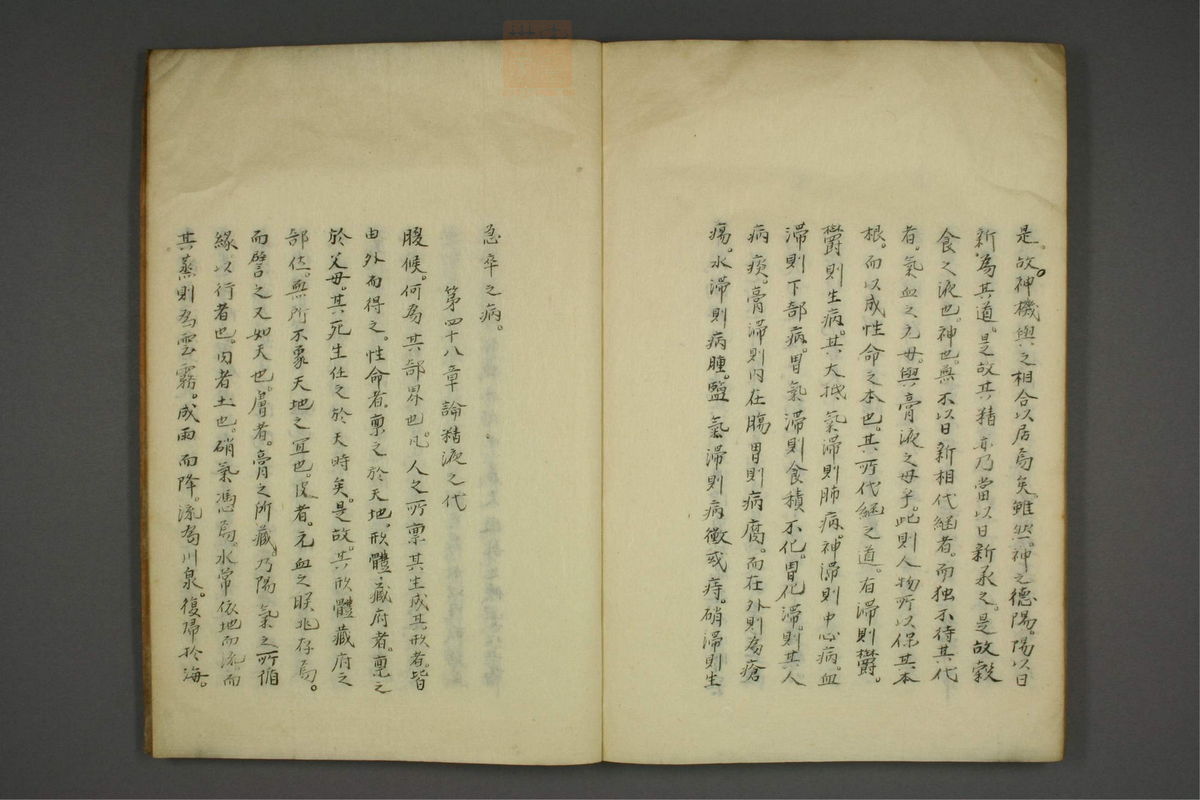 是。故神機與之相合以居焉矣。雖然。神之德陽。陽以日
新。為其道。是故其精亦乃當以日新承之。是故穀
食之液也。神也。無不以日新相代継者。而独不待其代
者。氣血之元毋。與膏液之母乎。此則人物所以保其本
根。而以成性命之本也。其所代継之道。有滞則欝。
欝則生病。其大抵氣滞則肺病。神滞則中心病。血
滞則下部病。胃氣滞則食積不化。胃化滞。則其人
病痰。膏滞則内在腸胃則病腐。而在外則為瘡
瘍。水滞則病腫。鹽氣滞則病癥或痔。硝滞則生
急卒之病。
第四十八章論精液之代
腹候。何為其部界也。凡人之所禀其生成其形者。皆
由外而得之。性命者。禀之於天地。形體藏府者。禀之
於父母。其死生任之於天時矣。是故其形體藏府之
部位。無所不象天地之冝也。皮者。元血之朕兆存焉。
而譬之又如天也。膚者。膏之所藏。乃陽氣之所循
緣以行者也。肉者土也。硝氣馮焉。水常依地而流。而
其蒸則為雲霧。成雨而降。流為川泉。復帰於海。